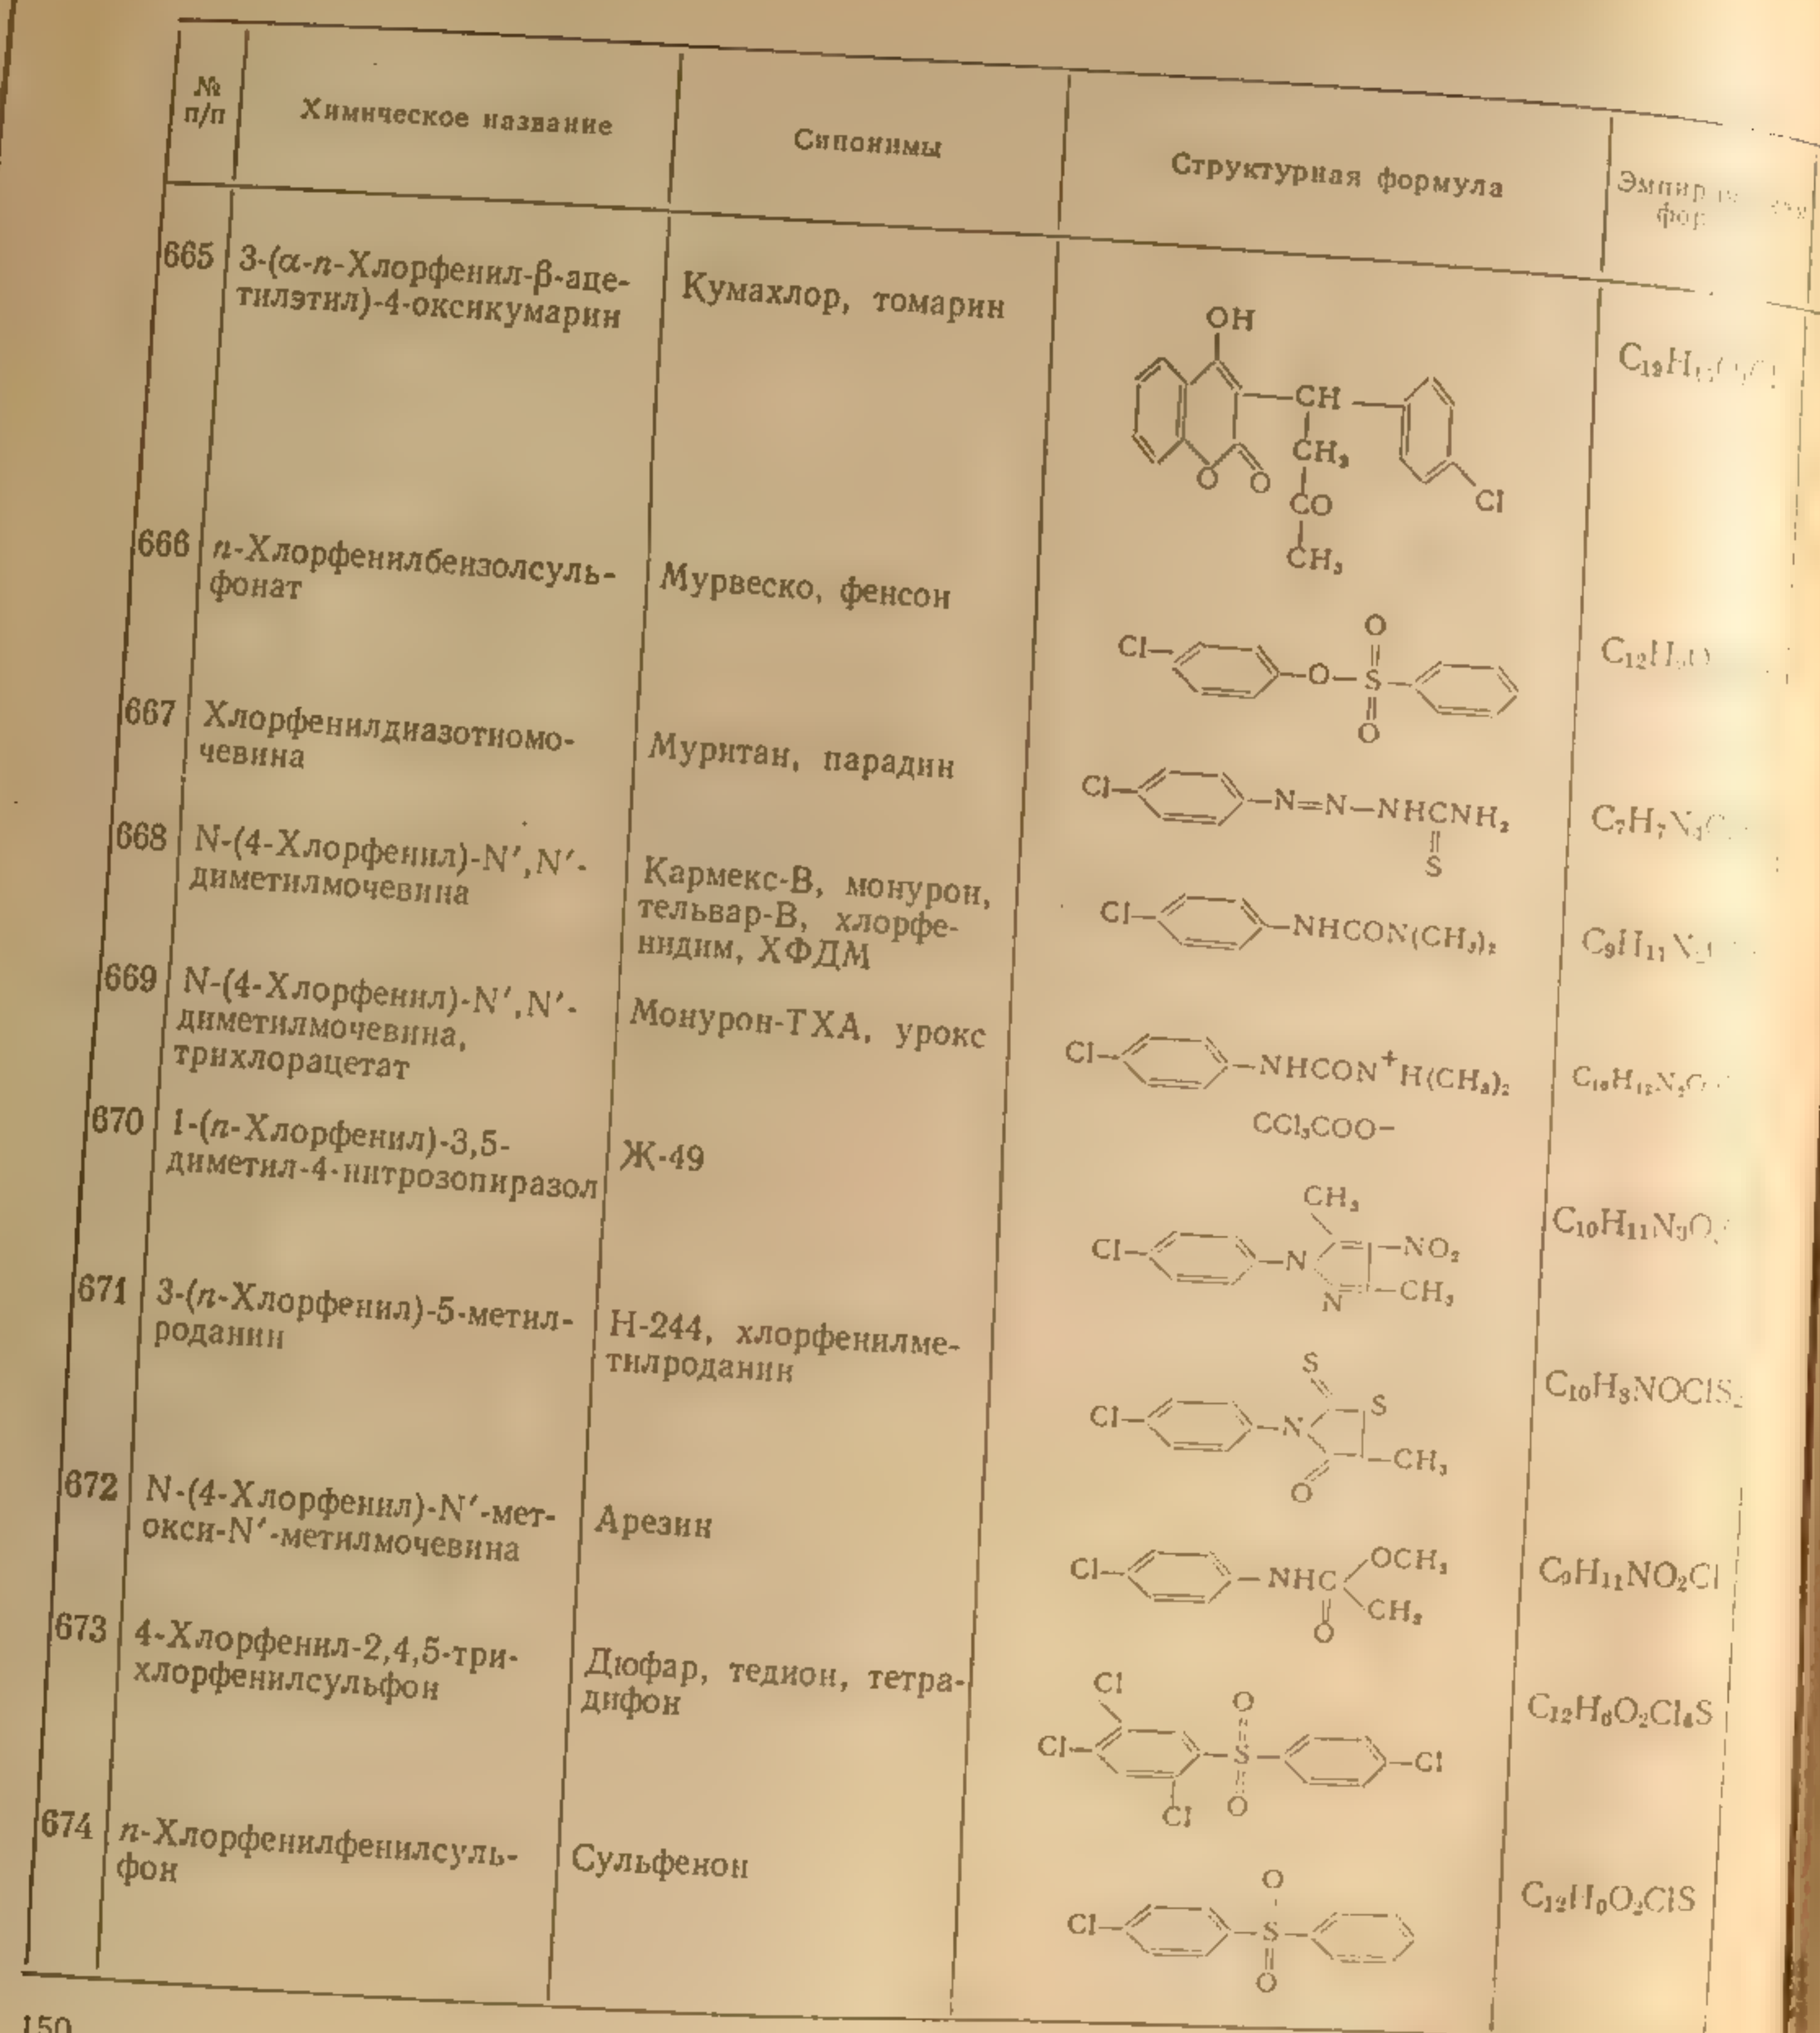 №
п/п
Химическое название
Синонимы
Структурная формула
665
3-(α-п-Хлорфенил-β-аце-
тилэтил)-4-оксикумарин
Кумахлор, томарин
OH
CH
CH₂
CO
CH₃
O
O
Cl
666
п-Хлорфенилбензолсуль-
фонат
Мурвеско, фенсон
O
Cl— —O—S—
O
667
Хлорфенилдиазотиомо-
чевина
Муритан, парадин
Cl— —N=N—NHCNH₂
S
668
N-(4-Хлорфенил)-N′,N′-
диметилмочевина
Кармекс-В, монурон,
тельвар-В, хлорфе-
нидим, ХФДМ
Cl— —NHCON(CH₃)₂
669
N-(4-Хлорфенил)-N′,N′-
диметилмочевина,
трихлорацетат
Монурон-ТХА, урокс
Cl— —NHCON⁺H(CH₃)₂
CCl₃COO−
670
1-(п-Хлорфенил)-3,5-
диметил-4-нитрозопиразол
Ж-49
CH₃
Cl— —N —NO₂
N —CH₃
C₁₀H₁₁N₃O
671
3-(п-Хлорфенил)-5-метил-
роданин
Н-244, хлорфенилме-
тилроданин
S
S
Cl— —N
—CH₃
O
C₁₀H₈NOClS₂
672
N-(4-Хлорфенил)-N′-мет-
окси-N′-метилмочевина
Арезин
OCH₃
Cl— —NHC
CH₃
O
C₉H₁₁NO₂Cl
673
4-Хлорфенил-2,4,5-три-
хлорфенилсульфон
Дюфар, тедион, тетра-
дифон
Cl
O
Cl— —S— —Cl
O
Cl
C₁₂H₆O₂Cl₄S
674
п-Хлорфенилфенилсуль-
фон
Сульфенон
O
Cl— —S—
O
C₁₂H₉O₂ClS
150